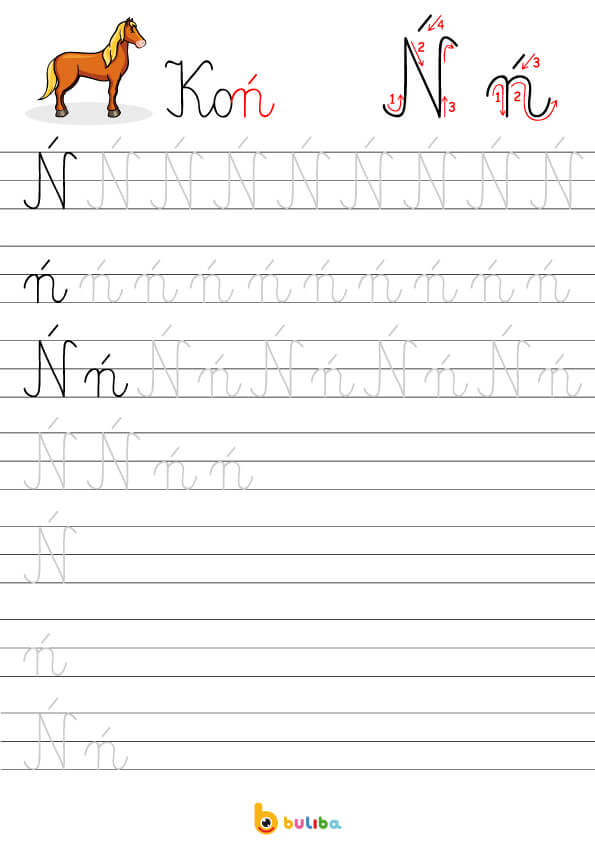 Koń
Ń ń
1 2 3 4 1 2 3
Ń Ń Ń Ń Ń Ń Ń Ń Ń
ń ń ń ń ń ń ń ń ń ń
Ń ń Ń ń Ń ń Ń ń Ń ń
Ń Ń ń ń
Ń
ń
Ń ń
buliba